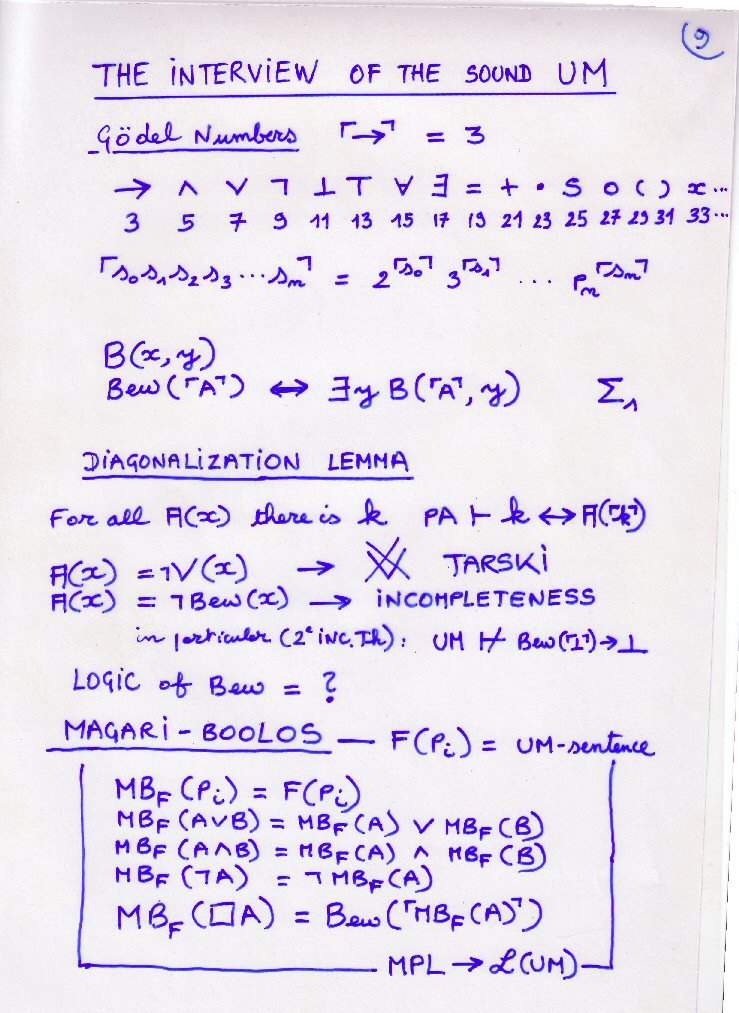 9
THE INTERVIEW OF THE SOUND UM
Gödel Numbers ⌜→⌝ = 3
→ ∧ ∨ ¬ ⊥ ⊤ ∀ ∃ = + • S 0 ( ) x ...
3 5 7 9 11 13 15 17 19 21 23 25 27 29 31 33 ...
⌜s₀s₁s₂s₃...sₙ⌝ = 2^⌜s₀⌝ 3^⌜s₁⌝ ... Pₙ^⌜sₙ⌝
B(x,y)
Bew(⌜A⌝) ↔ ∃y B(⌜A⌝, y) Σ₁
DIAGONALIZATION LEMMA
For all A(x) there is k PA ⊢ k ↔ A(⌜k⌝)
A(x) = ¬V(x) → V TARSKI
A(x) = ¬Bew(x) → INCOMPLETENESS
in particular (2ᵉ inc. Th): UM ⊬ Bew(⌜⊥⌝) → ⊥
LOGIC of Bew = ?
MAGARI - BOOLOS — F(Pᵢ) = UM-sentence
MB_F (Pᵢ) = F(Pᵢ)
MB_F (A∨B) = MB_F(A) ∨ MB_F(B)
MB_F (A∧B) = MB_F(A) ∧ MB_F(B)
MB_F (¬A) = ¬MB_F(A)
MB_F (□A) = Bew(⌜MB_F(A)⌝)
MPL → ℒ(UM)